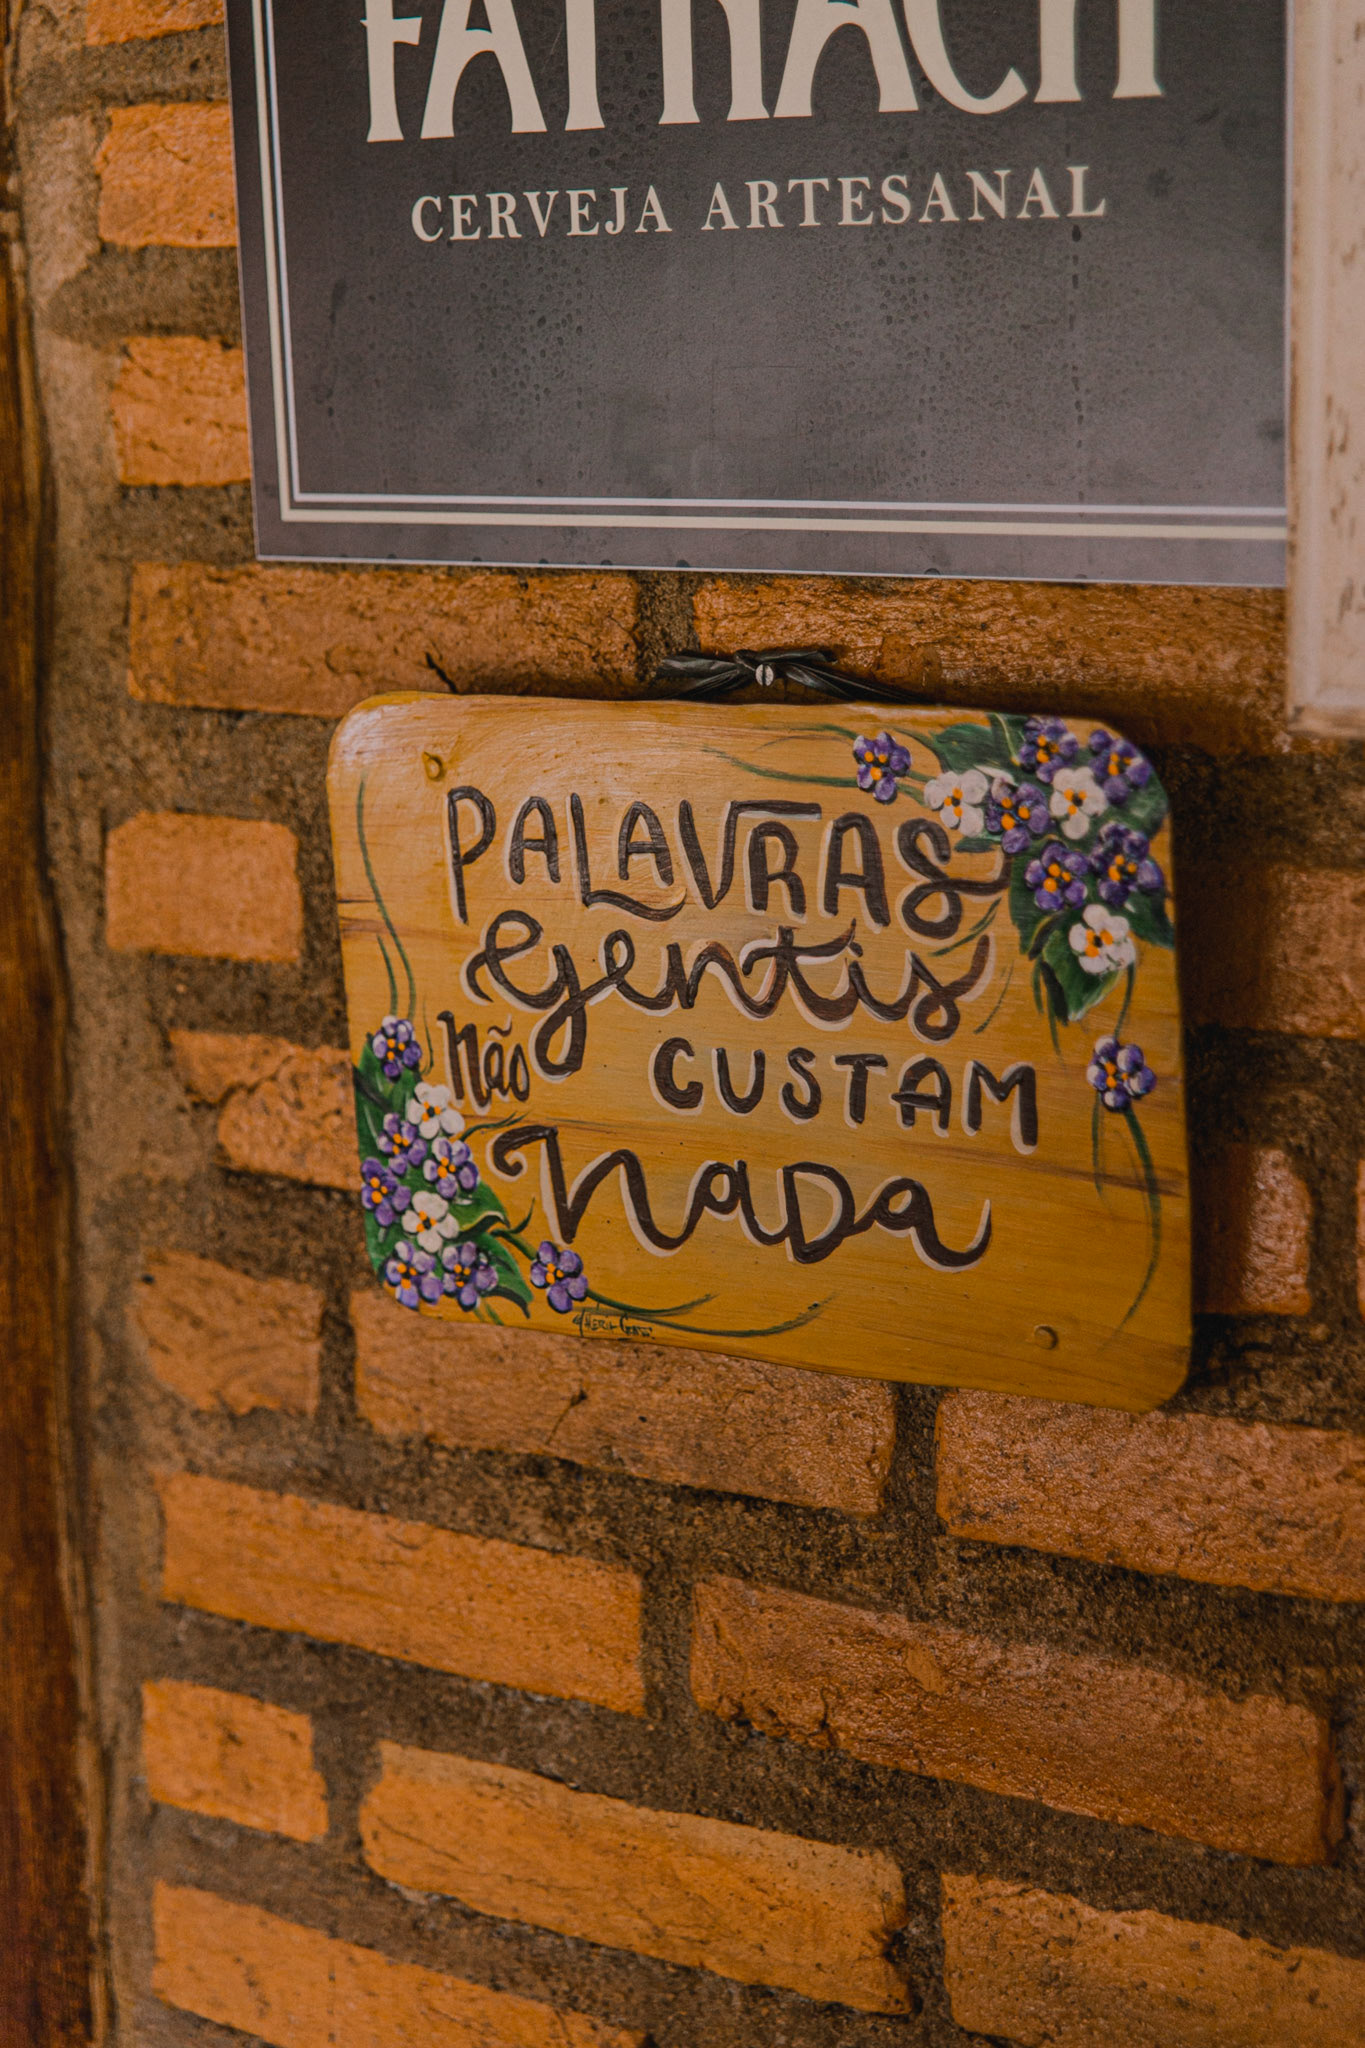 CERVEJA ARTESANAL
PALAVRAS
gentis
não CUSTAM
nada